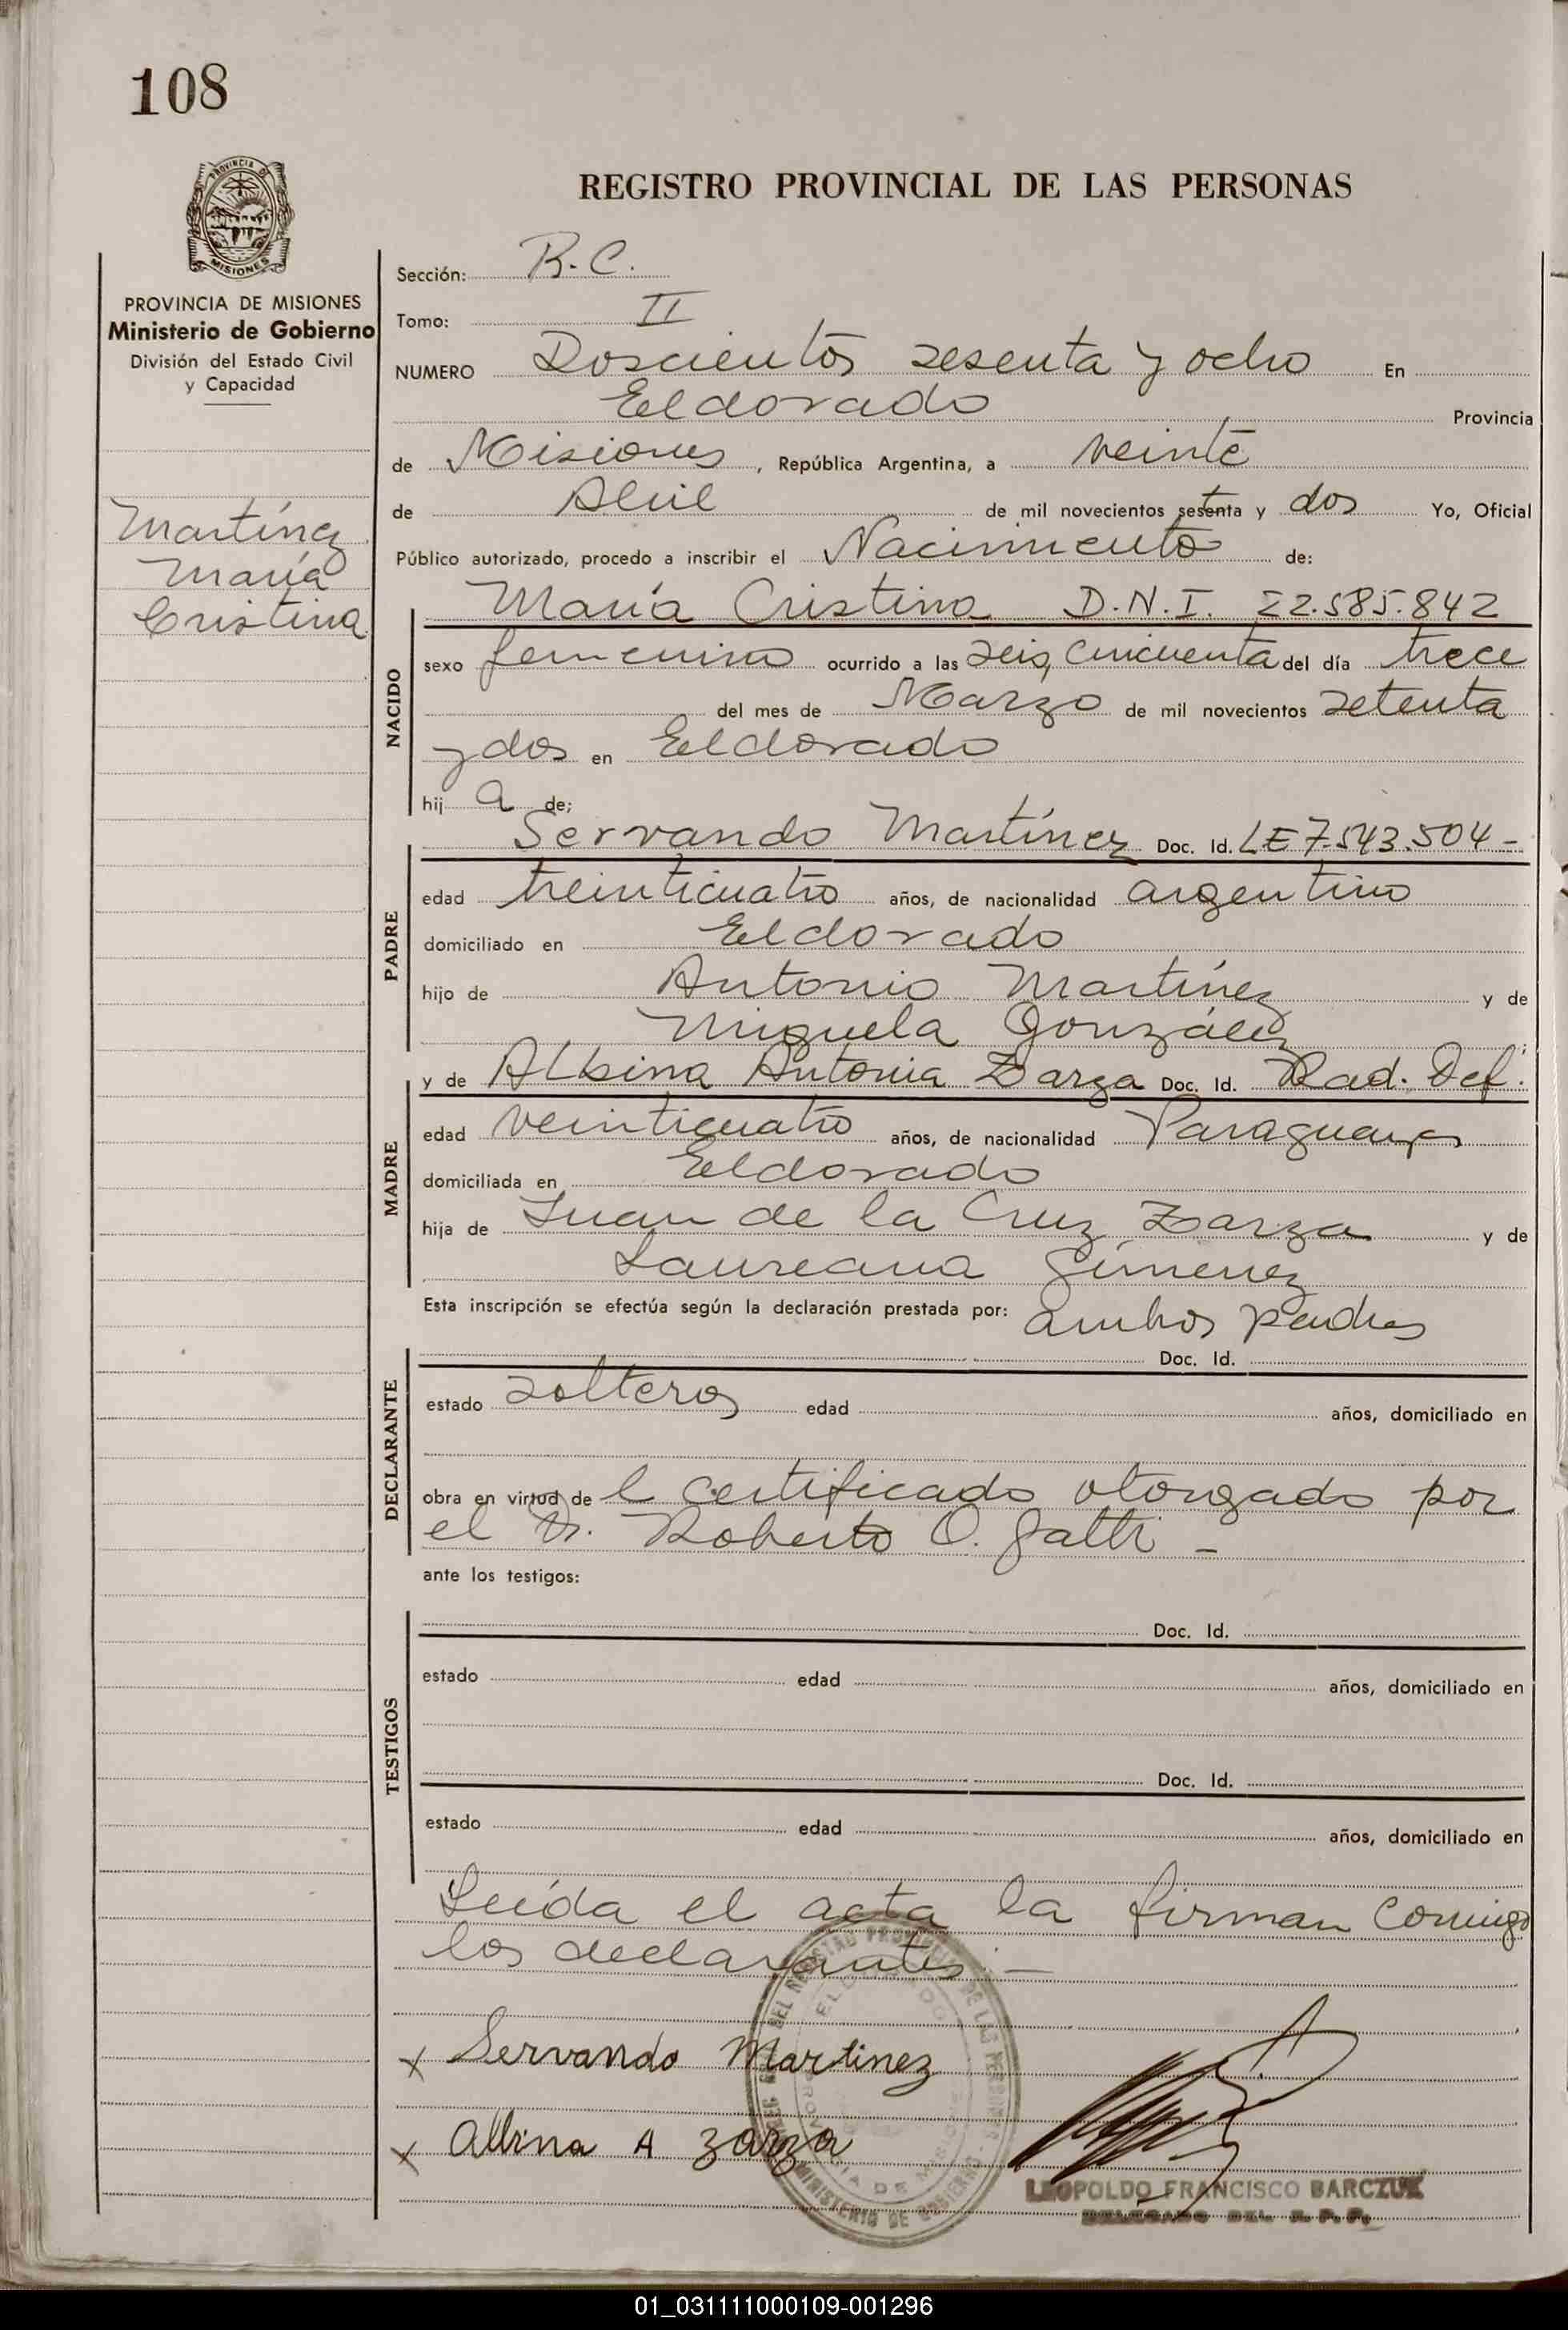 108
PROVINCIA DE
MISIONES
PROVINCIA DE MISIONES
Ministerio de Gobierno
División del Estado Civil
y Capacidad
Martínez
María
Cristina
REGISTRO PROVINCIAL DE LAS PERSONAS
Sección: R.C.
Tomo: II
NUMERO Doscientos sesenta y ocho En
Eldorado Provincia
de Misiones, República Argentina, a veinte
de Abril de mil novecientos setenta y dos Yo, Oficial
Público autorizado, procedo a inscribir el Nacimiento de:
NACIDO
María Cristina D.N.I. 22.585.842
sexo femenino ocurrido a las seis, cincuenta del día trece
del mes de Marzo de mil novecientos setenta
y dos en Eldorado
hija de:
PADRE
Servando Martínez Doc. Id. LE 7.543.504-
edad treinticuatro años, de nacionalidad argentino
domiciliado en Eldorado
hijo de Antonio Martínez y de
Miguela González
MADRE
y de Albina Antonia Zarza Doc. Id. Rad. Def.
edad veinticuatro años, de nacionalidad Paraguaya
domiciliada en Eldorado
hija de Juan de la Cruz Zarza y de
Laureana Gimenez
Esta inscripción se efectúa según la declaración prestada por: ambos padres
DECLARANTE
Doc. Id.
estado solteros edad años, domiciliado en
obra en virtud del certificado otorgado por
el Dr. Roberto O. Gatti -
ante los testigos:
TESTIGOS
Doc. Id.
estado edad años, domiciliado en
Doc. Id.
estado edad años, domiciliado en
Leída el acta la firman comigo
los declarantes.-
x Servando Martinez
x Albina A Zarza
ELDORADO
PROVINCIA DE MISIONES
MINISTERIO DE GOBIERNO
LEOPOLDO FRANCISCO BARCZUK
DELEGADO DEL R. P. P.
01_031111000109-001296